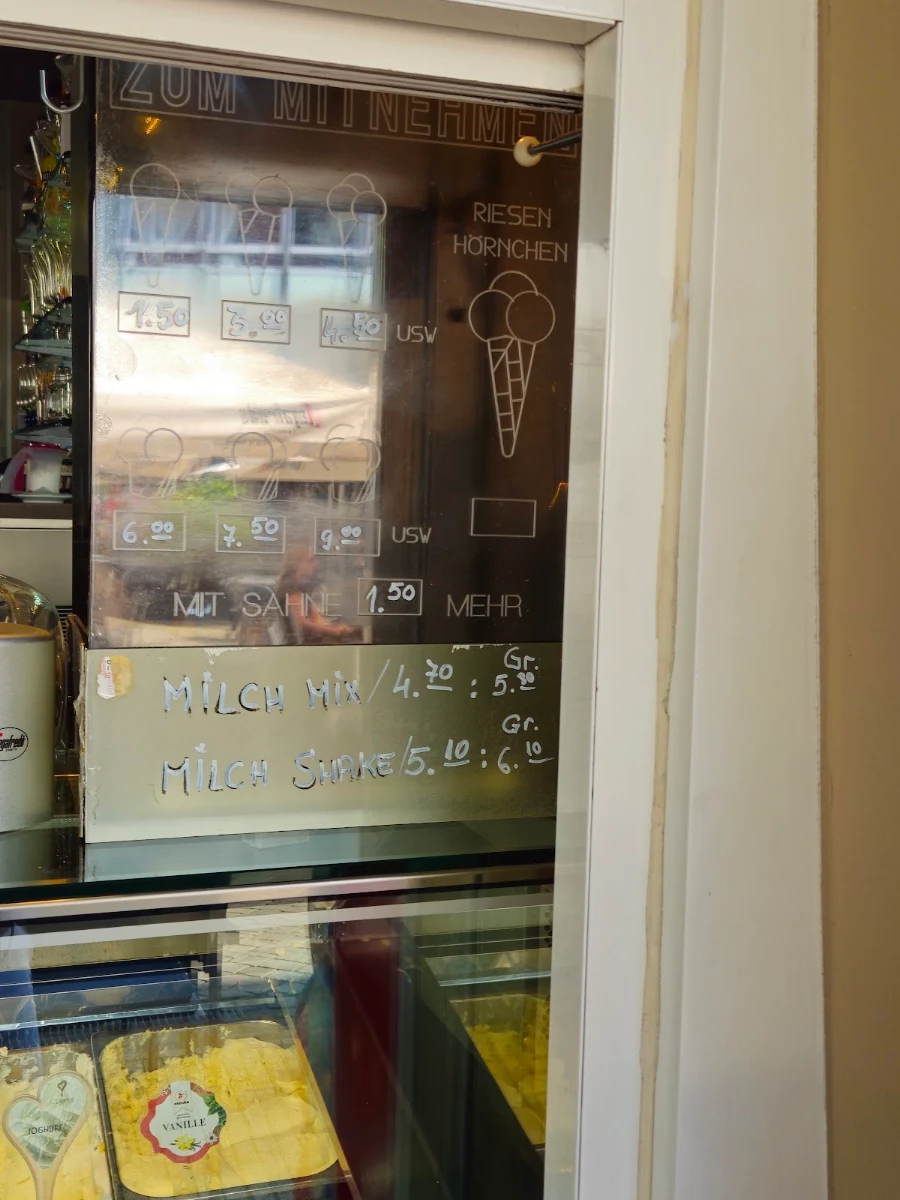 ZUM MITNEHMEN
RIESEN
HÖRNCHEN
1.50 3.00 4.50 USW
6.00 7.50 9.00 USW
MIT SAHNE 1.50 MEHR
Gr.
MILCH MIX / 4.70 : 5.20
Gr.
MILCH SHAKE / 5.10 : 6.10
JOGHURT
VANILLE